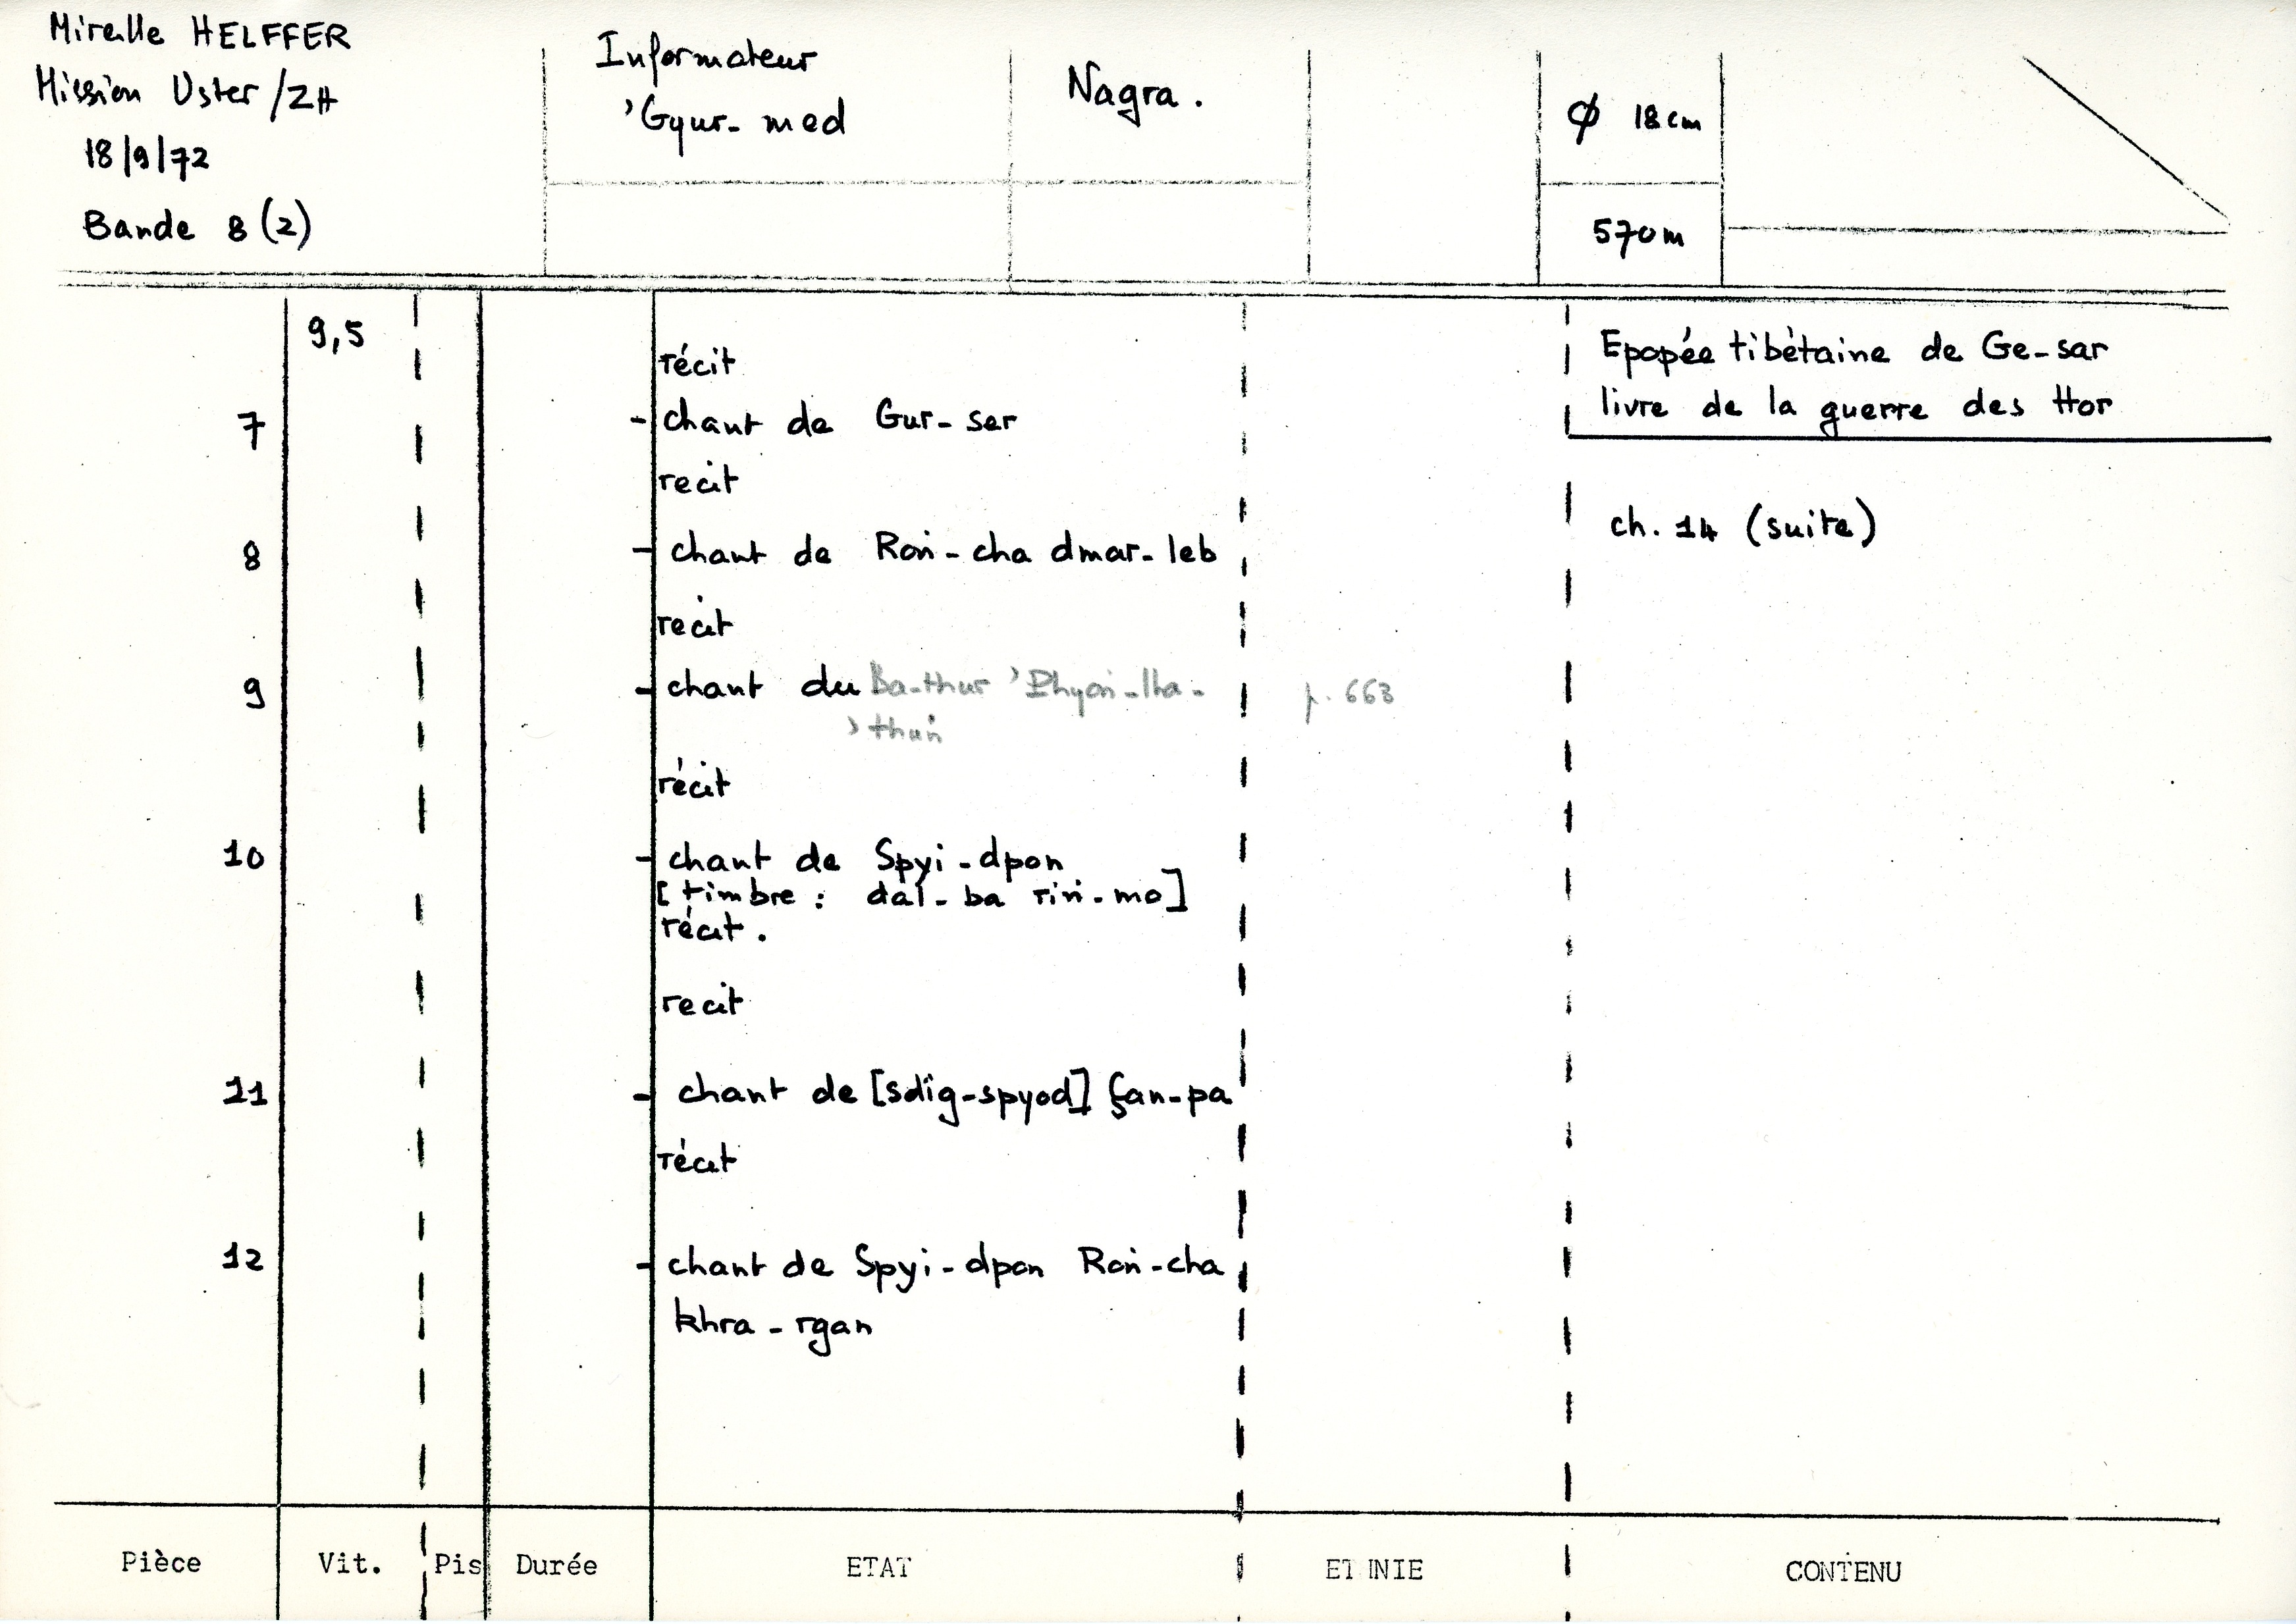 Mireille HELFFER
Mission Uster/ZH
18/9/72
Bande 8 (2)
Informateur
'Gyur-med
Nagra.
Ø 18 cm
570 m
9,5
récit
7 - chant de Gur-ser
recit
8 - chant de Roṅ-cha dmar-leb
recit
9 - chant du Ba-thur 'Phyoṅ-lha- p. 663
'thuṅ
récit
10 - chant de Spyi-dpon
[timbre : dal-ba riṅ-mo]
récit.
recit
11 - chant de [sdig-spyod] Çan-pa
récit
12 - chant de Spyi-dpon Roṅ-cha
khra-rgan
Epopée tibétaine de Ge-sar
livre de la guerre des Hor
ch. 14 (suite)
Pièce Vit. Pis Durée ETAT ETHNIE CONTENU